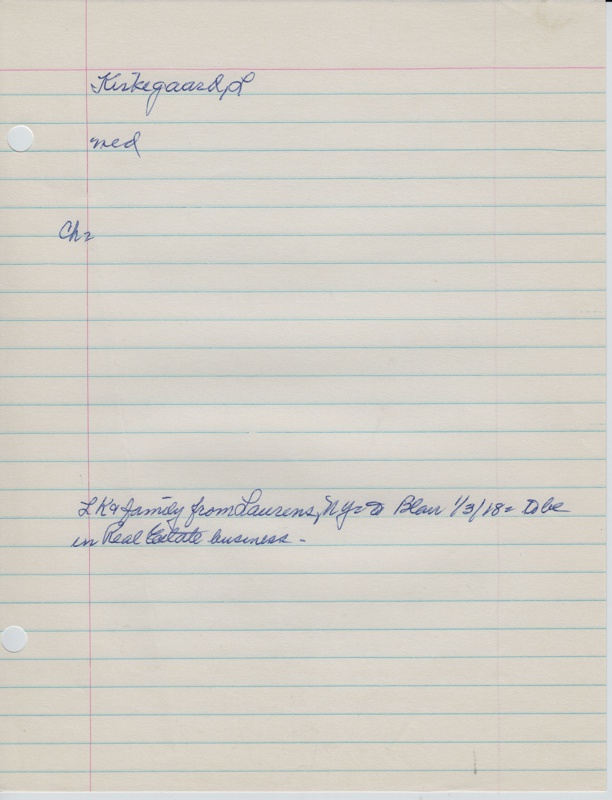 Kirkegaard, L
med
Ch=
L K & family from Laurens, NY = to Blair 1/3/18 = to be
in Real Estate business -